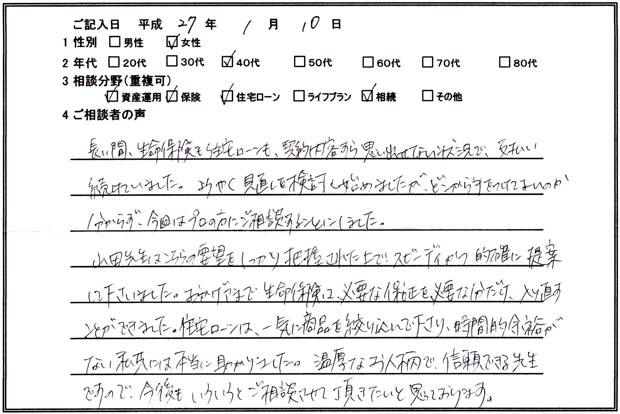 ご記入日 平成 27 年 1 月 10 日
1 性別 □男性 ☑女性
2 年代 □20代 □30代 ☑40代 □50代 □60代 □70代 □80代
3 相談分野(重複可)
☑資産運用 ☑保険 ☑住宅ローン □ライフプラン ☑相続 □その他
4 ご相談者の声
長い間、生命保険も住宅ローンも、契約内容すら思い出せない状況で、支払い
続けていました。ようやく見直しを検討し始めましたが、どこから手をつけてよいのか
分からず、今回はプロの方にご相談することにしました。
山田先生はこちらの要望をしっかり把握された上で、スピーディかつ的確に提案
して下さいました。おかげさまで生命保険は、必要な保証を必要な分だけ、入り直す
ことができました。住宅ローンは、一気に商品を絞り込んで下さり、時間的余裕が
ない私共には本当に助かりました。温厚なお人柄で、信頼できる先生
ですので、今後もいろいろとご相談させて頂きたいと思っております。